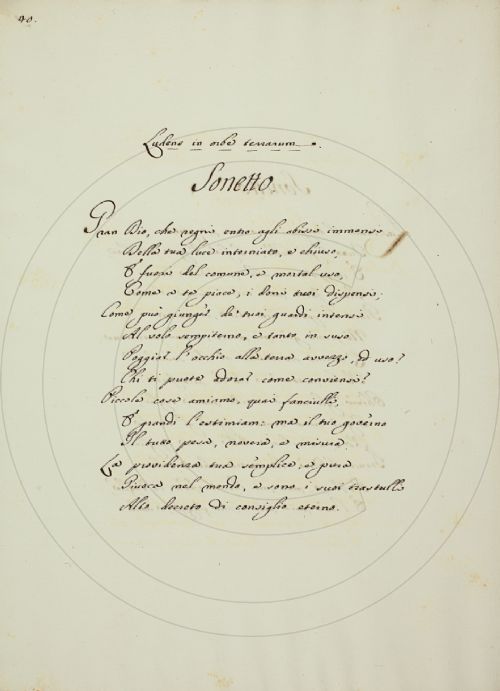 40.
Ludens in orbe terrarum.
Sonetto
Gran Dio, che regni entro agli abissi immensi
Della tua luce interniato, e chiuso,
E fuori del comune, e mortal uso,
Come a te piace, i doni tuoi dispensi;
Come può giunger de' tuoi guardi intensi
Al volo sempiterno, e tanto in suso
Poggiar l'occhio alla terra avvezzo, ed uso?
Chi ti puote adorar come conviensi?
Piccole cose amiamo, quai fanciulli,
E grandi l'estimiam: ma il tuo governo
Il tutto pesa, novera, e misura.
La providenza tua semplice, e pura
Giuoca nel mondo, e sono i suoi trastulli
Alto decreto di consiglio eterno.